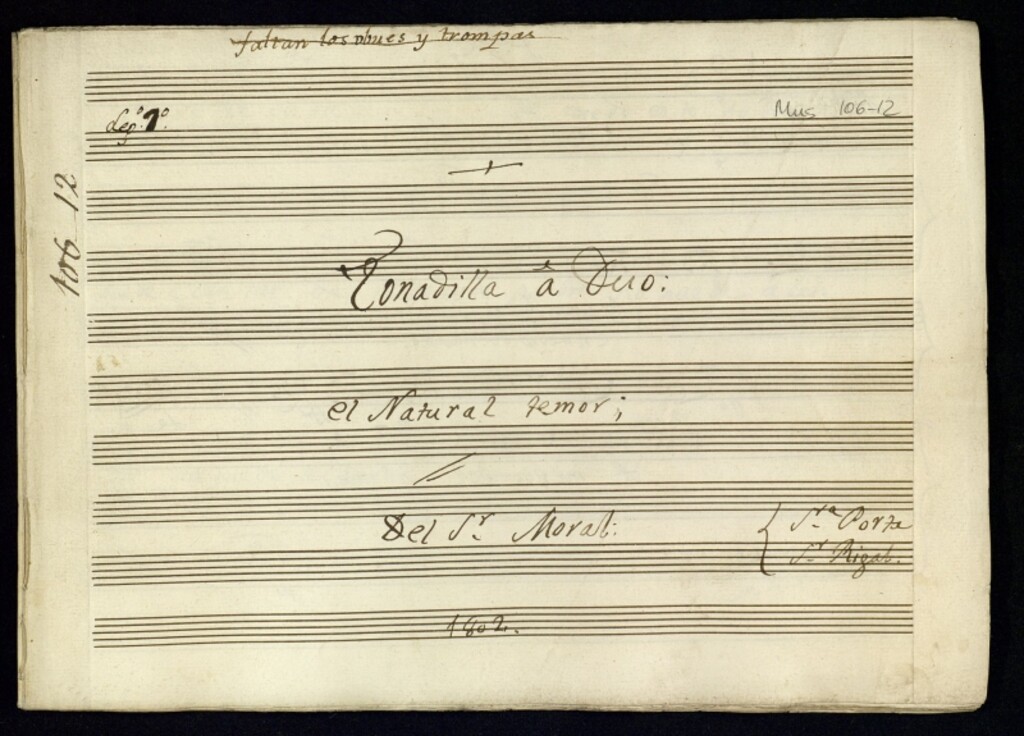 faltan los obues y trompas
Leg.º 1º.
Mus 106-12
106-12
Tonadilla â Duo:
el Natural temor;
Del Sr. Moral:
Sra. Porta
Sr. Rigal.
1802.